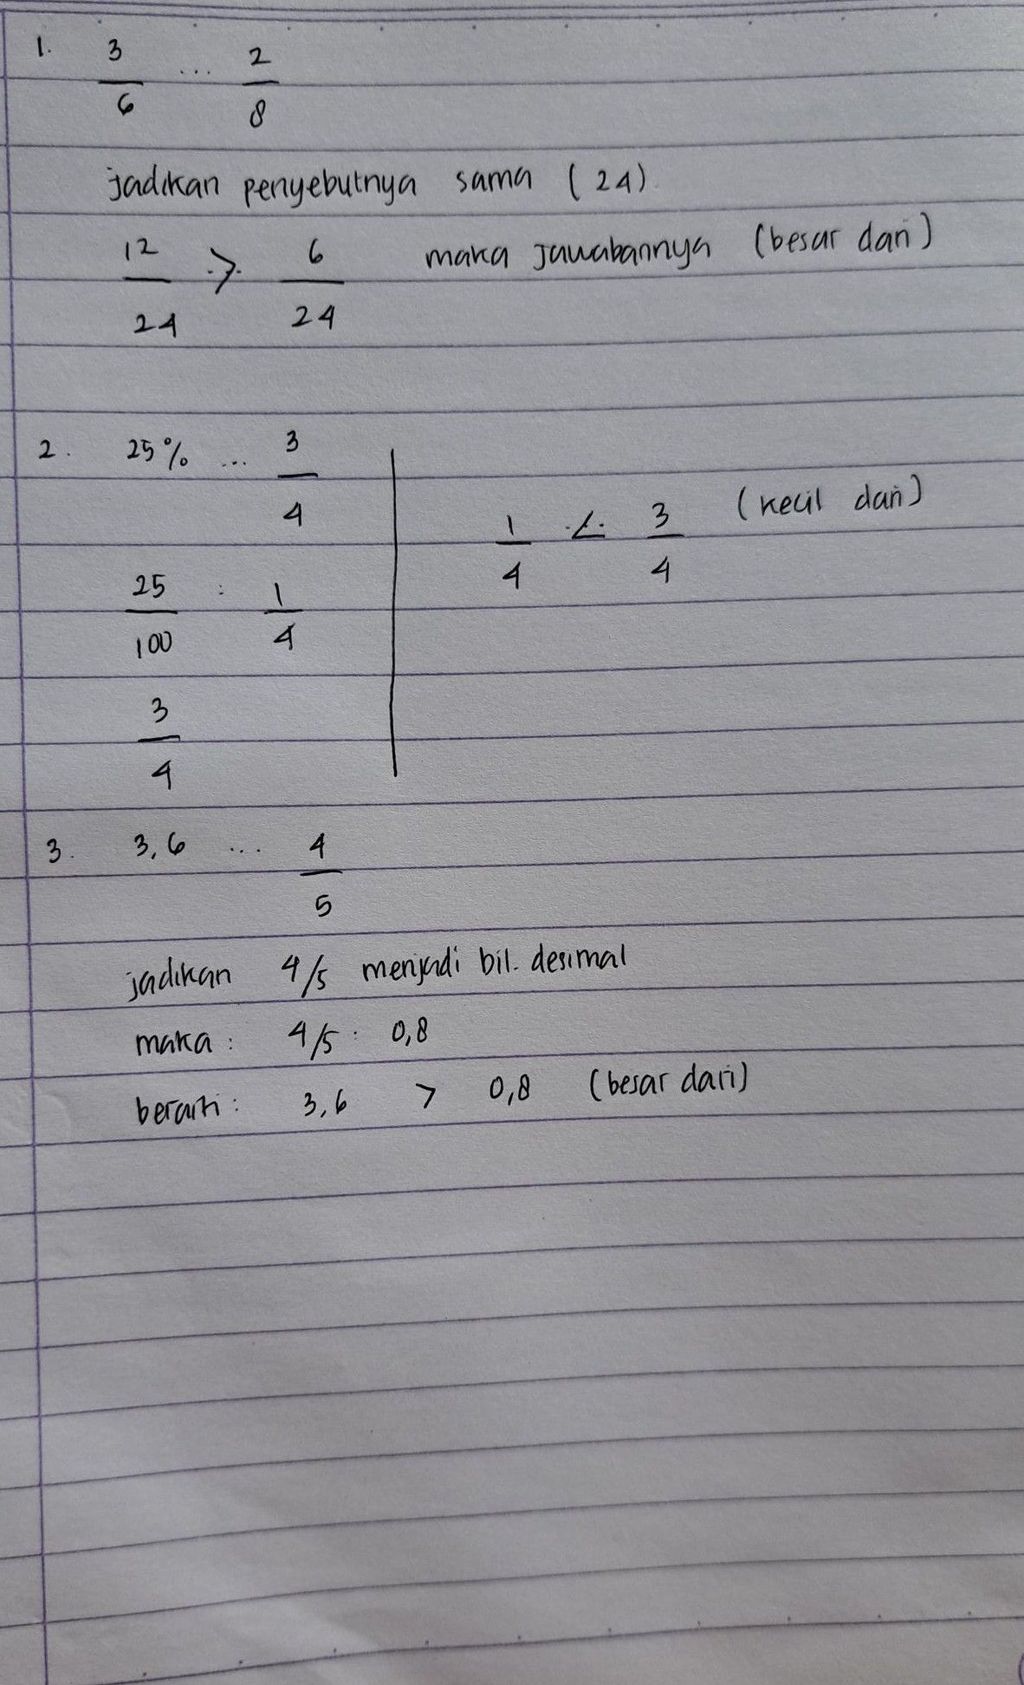 1. 3/6 ... 2/8
jadikan penyebutnya sama (24)
12/24 .>. 6/24 maka jawabannya (besar dari)
2. 25% ... 3/4
25/100 : 1/4
3/4
1/4 .<. 3/4 (kecil dari)
3. 3,6 ... 4/5
jadikan 4/5 menjadi bil. desimal
maka : 4/5 : 0,8
berarti : 3,6 > 0,8 (besar dari)